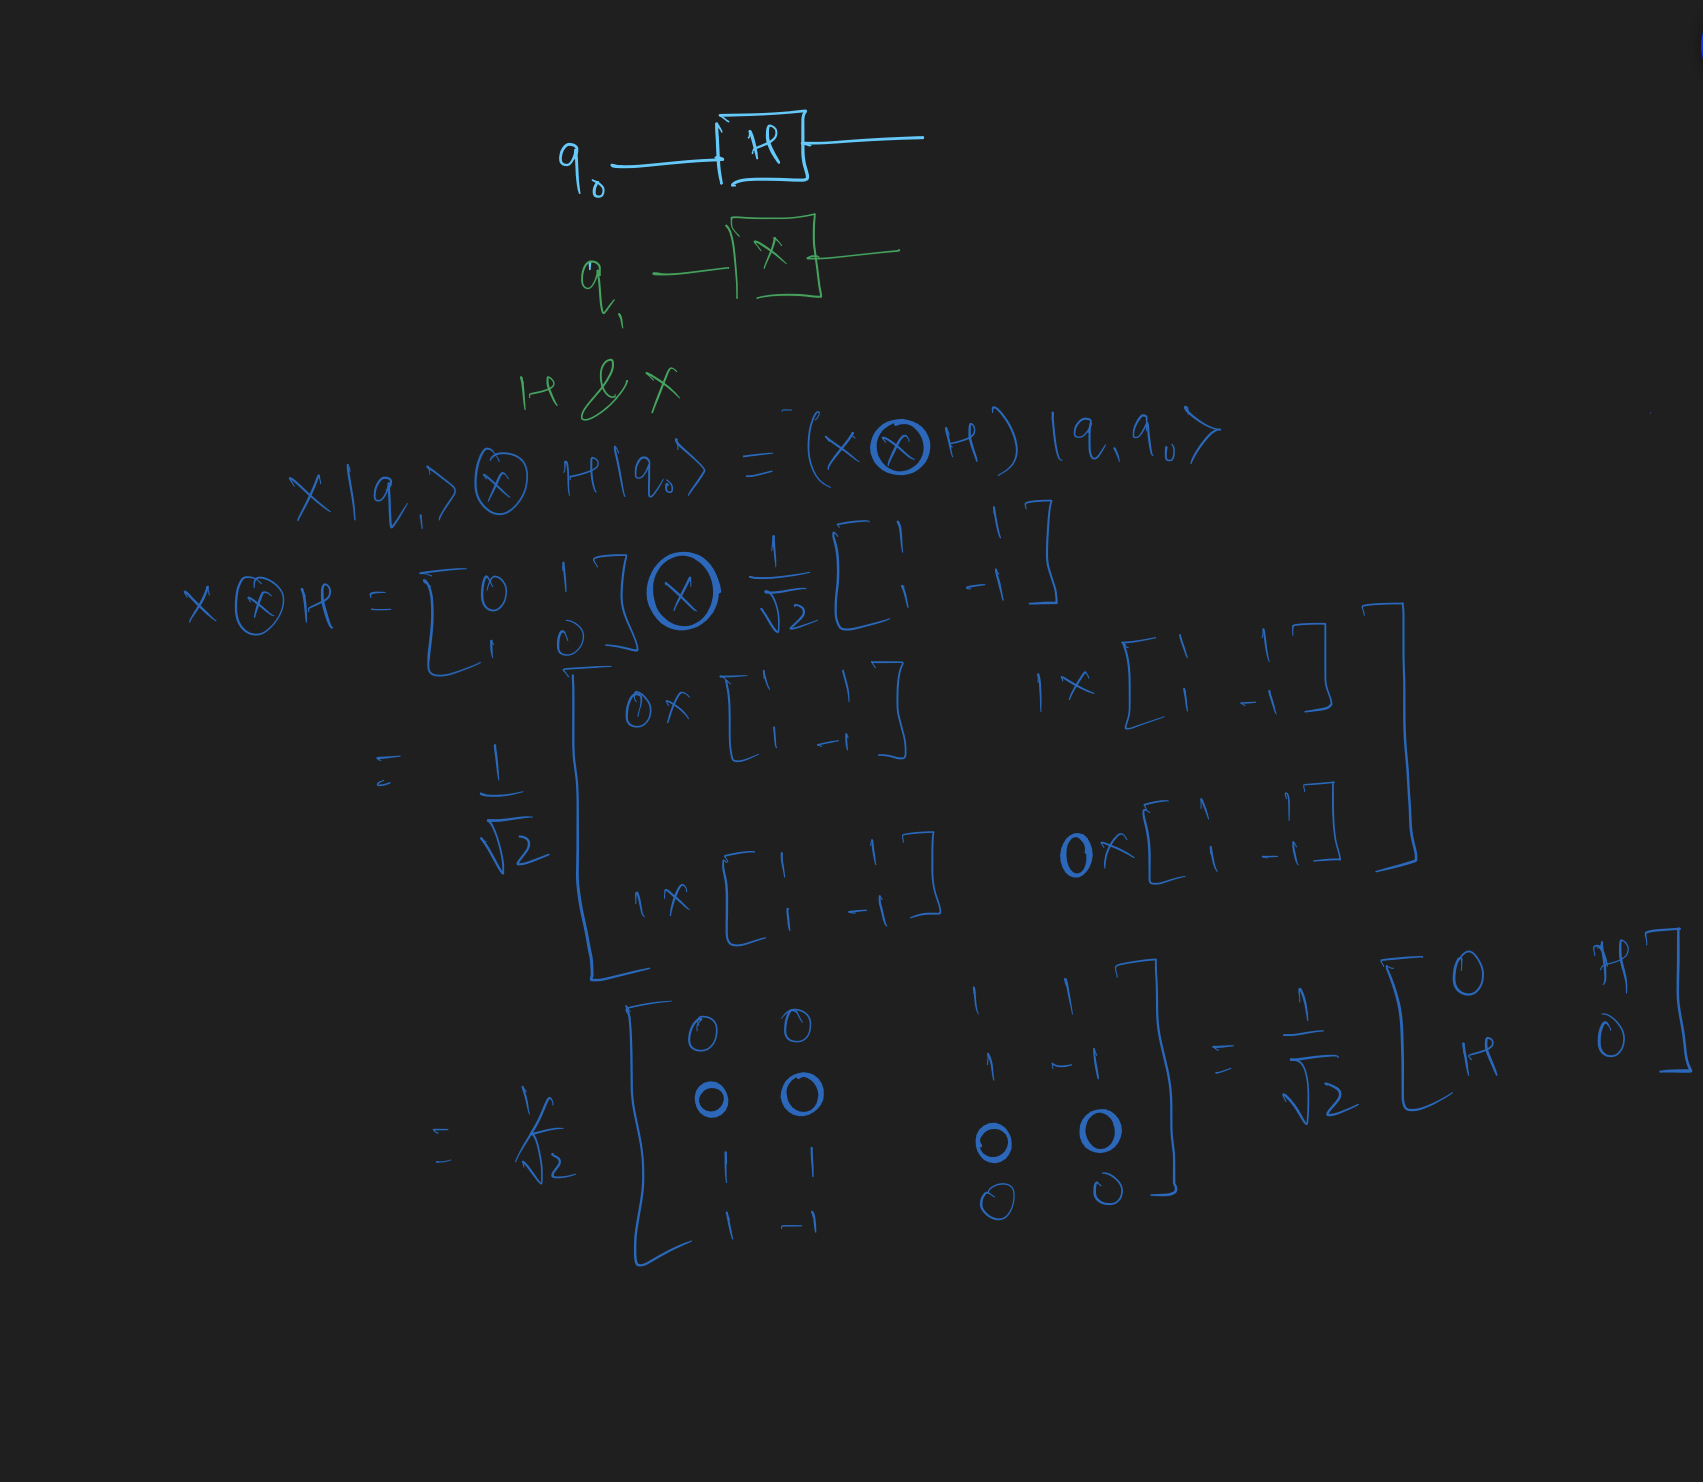 q₀ H
q₁ X
H & X
X|q₁⟩ ⊗ H|q₀⟩ = (X ⊗ H) |q₁q₀⟩
X ⊗ H = [0 1; 1 0] ⊗ 1/√2 [1 1; 1 -1]
= 1/√2 [0 × [1 1; 1 -1] 1 × [1 1; 1 -1]; 1 × [1 1; 1 -1] 0 × [1 1; 1 -1]]
= 1/√2 [0 0 1 1; 0 0 1 -1; 1 1 0 0; 1 -1 0 0] = 1/√2 [0 H; H 0]